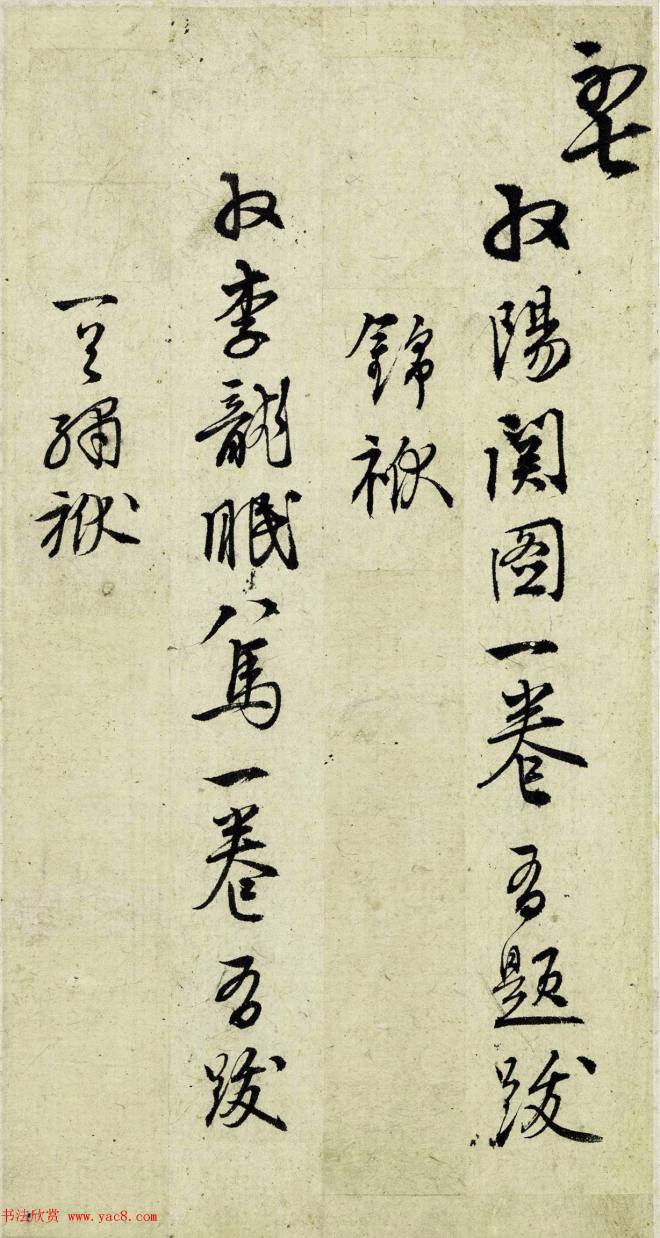 初七
收陽関圖一卷有題跋
錦袱
收李龍眠八馬一卷有跋
一繡袱
书法欣赏 www.yac8.com